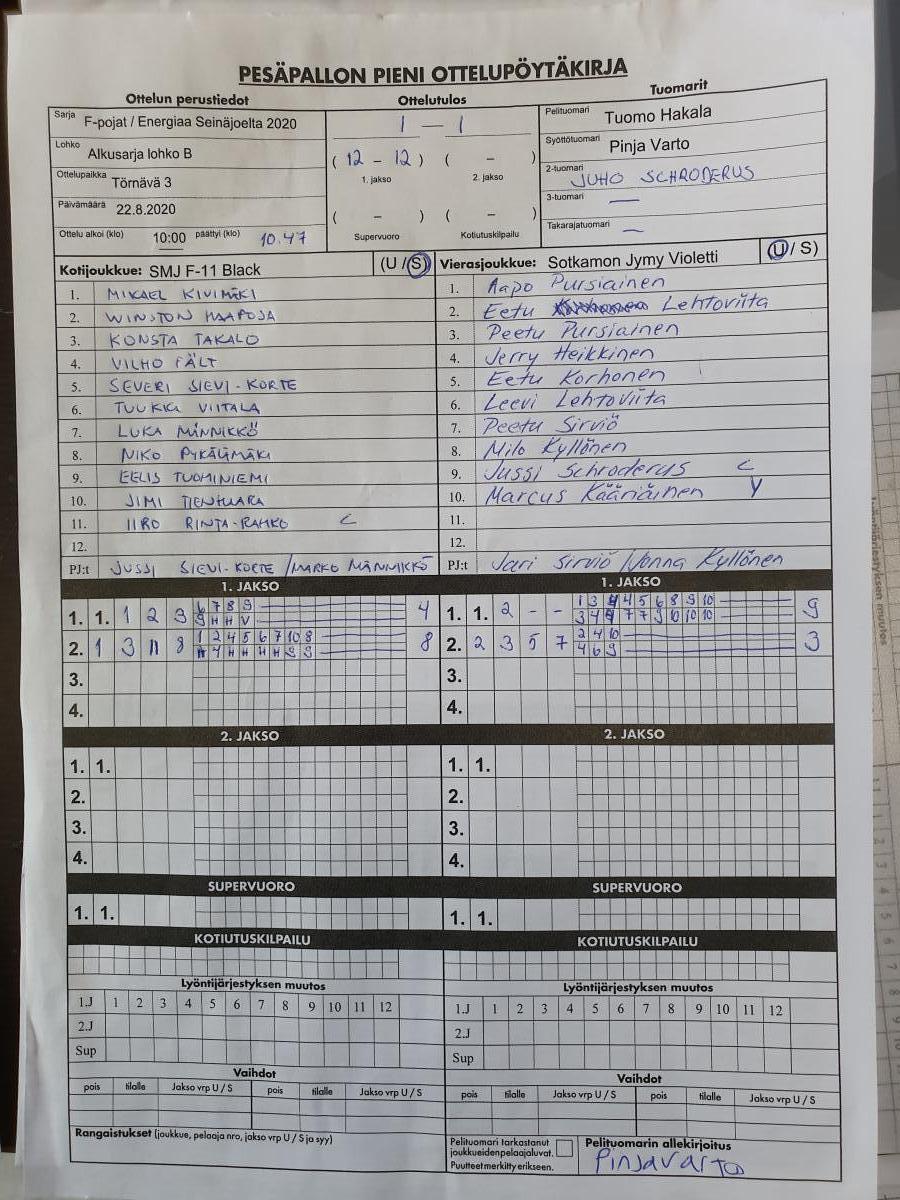 PESÄPALLON PIENI OTTELUPÖYTÄKIRJA
Ottelun perustiedot
Sarja F-pojat / Energiaa Seinäjoelta 2020
Lohko Alkusarja lohko B
Ottelupaikka Törnävä 3
Päivämäärä 22.8.2020
Ottelu alkoi (klo) 10:00 päättyi (klo) 10.47
Ottelutulos
1 — 1
( 12 - 12 ) ( - )
1. jakso 2. jakso
( - ) ( - )
Supervuoro Kotiutuskilpailu
Tuomarit
Pelituomari Tuomo Hakala
Syöttötuomari Pinja Varto
2-tuomari JUHO SCHRODERUS
3-tuomari —
Takarajatuomari —
Kotijoukkue: SMJ F-11 Black (U / S)
1. MIKAEL KIVIMÄKI
2. WINSTON HAAPOJA
3. KONSTA TAKALO
4. VILHO FÄLT
5. SEVERI SIEVI-KORTE
6. TUUKKA VIITALA
7. LUKA MÄNNIKKÖ
8. NIKO PYKÄLIMÄKI
9. EELIS TUOMINIEMI
10. JIMI TIENHAARA
11. IIRO RINTA-RAHKO C
12.
PJ:t JUSSI SIEVI-KORTE / MARKO MÄNNIKKÖ
Vierasjoukkue: Sotkamon Jymy Violetti (U / S)
1. Aapo Pursiainen
2. Eetu Lehtoviita
3. Peetu Pursiainen
4. Jerry Heikkinen
5. Eetu Korhonen
6. Leevi Lehtoviita
7. Peetu Sirviö
8. Milo Kyllönen
9. Jussi Schroderus C
10. Marcus Kääriäinen Y
11.
12.
PJ:t Jari Sirviö / Jonna Kyllönen
1. JAKSO
1. 1. 1 2 3 6 7 8 9 4
9 H H V
2. 1 3 11 8 1 2 4 5 6 7 10 8 8
4 H H H H 9 9
3.
4.
1. JAKSO
1. 1. 2 - - 1 3 4 4 5 6 8 9 10 9
3 4 7 7 9 10 10 10
2. 2 3 5 7 2 4 10 3
4 6 9
3.
4.
2. JAKSO
1. 1.
2.
3.
4.
2. JAKSO
1. 1.
2.
3.
4.
SUPERVUORO
1. 1.
SUPERVUORO
1. 1.
KOTIUTUSKILPAILU
KOTIUTUSKILPAILU
Lyöntijärjestyksen muutos
1.J 1 2 3 4 5 6 7 8 9 10 11 12
2.J
Sup
Lyöntijärjestyksen muutos
1.J 1 2 3 4 5 6 7 8 9 10 11 12
2.J
Sup
Vaihdot
pois tilalle Jakso vrp U / S pois tilalle Jakso vrp U / S
Vaihdot
pois tilalle Jakso vrp U / S pois tilalle Jakso vrp U / S
Rangaistukset (joukkue, pelaaja nro, jakso vrp U / S ja syy)
Pelituomari tarkastanut
joukkueiden pelaajaluvat.
Puutteet merkitty erikseen.
Pelituomarin allekirjoitus
Pinja Varto